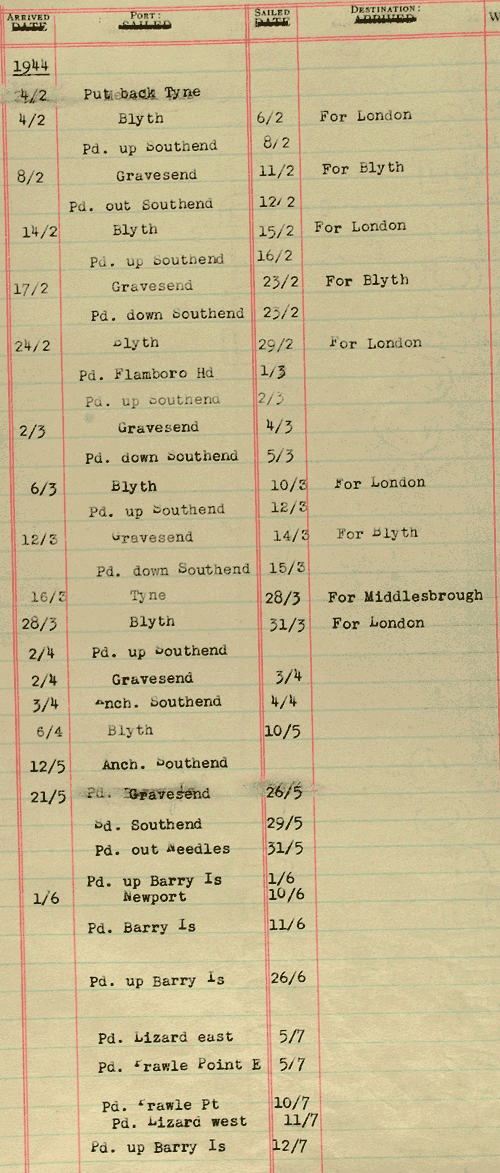 ARRIVED PORT: SAILED DESTINATION:
DATE SAILED DATE ARRIVED
1944
4/2 Put back Tyne
4/2 Blyth 6/2 For London
Pd. up Southend 8/2
8/2 Gravesend 11/2 For Blyth
Pd. out Southend 12/2
14/2 Blyth 15/2 For London
Pd. up Southend 16/2
17/2 Gravesend 23/2 For Blyth
Pd. down Southend 23/2
24/2 Blyth 29/2 For London
Pd. Flamboro Hd 1/3
Pd. up Southend 2/3
2/3 Gravesend 4/3
Pd. down Southend 5/3
6/3 Blyth 10/3 For London
Pd. up Southend 12/3
12/3 Gravesend 14/3 For Blyth
Pd. down Southend 15/3
16/3 Tyne 28/3 For Middlesbrough
28/3 Blyth 31/3 For London
2/4 Pd. up Southend
2/4 Gravesend 3/4
3/4 Anch. Southend 4/4
6/4 Blyth 10/5
12/5 Anch. Southend
21/5 Pd. Gravesend 26/5
Sd. Southend 29/5
Pd. out Needles 31/5
Pd. up Barry Is 1/6
1/6 Newport 10/6
Pd. Barry Is 11/6
Pd. up Barry Is 26/6
Pd. Lizard east 5/7
Pd. Prawle Point E 5/7
Pd. Prawle Pt 10/7
Pd. Lizard west 11/7
Pd. up Barry Is 12/7